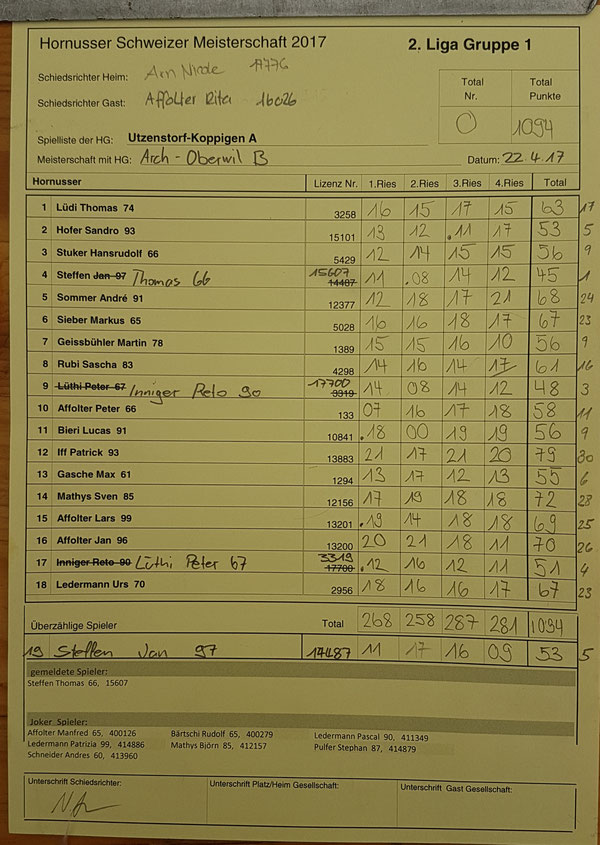 Hornusser Schweizer Meisterschaft 2017 2. Liga Gruppe 1
Schiedsrichter Heim: Arn Nicole 17776
Schiedsrichter Gast: Affolter Rita 16026
Total Nr. Total Punkte
0 1094
Spielliste der HG: Utzenstorf-Koppigen A
Meisterschaft mit HG: Arch - Oberwil B Datum: 22.4.17
Hornusser Lizenz Nr. 1.Ries 2.Ries 3.Ries 4.Ries Total
1 Lüdi Thomas 74 3258 16 15 17 15 63 17
2 Hofer Sandro 93 15101 13 12 .11 17 53 5
3 Stuker Hansrudolf 66 5429 12 14 15 15 56 9
4 Steffen Jan 97 Thomas 66 15607 14487 11 .08 14 12 45 1
5 Sommer André 91 12377 12 18 17 21 68 24
6 Sieber Markus 65 5028 16 16 18 17 67 23
7 Geissbühler Martin 78 1389 15 15 16 10 56 9
8 Rubi Sascha 83 4298 14 16 14 17 61 16
9 Lüthi Peter 67 Inniger Reto 90 17700 3319 14 08 14 12 48 3
10 Affolter Peter 66 133 07 16 17 18 58 11
11 Bieri Lucas 91 10841 .18 00 19 19 56 9
12 Iff Patrick 93 13883 21 17 21 20 79 30
13 Gasche Max 61 1294 13 17 12 13 55 6
14 Mathys Sven 85 12156 17 19 18 18 72 28
15 Affolter Lars 99 13201 .19 14 18 18 69 25
16 Affolter Jan 96 13200 20 21 18 11 70 26
17 Inniger Reto 90 Lüthi Peter 67 3319 17700 .12 16 12 11 51 4
18 Ledermann Urs 70 2956 18 16 16 17 67 23
Überzählige Spieler Total 268 258 287 281 1094
19 Steffen Jan 97 14487 11 17 16 09 53 5
gemeldete Spieler:
Steffen Thomas 66, 15607
Joker Spieler:
Affolter Manfred 65, 400126 Bärtschi Rudolf 65, 400279 Ledermann Pascal 90, 411349
Ledermann Patrizia 99, 414886 Mathys Björn 85, 412157 Pulfer Stephan 87, 414879
Schneider Andres 60, 413960
Unterschrift Schiedsrichter: Unterschrift Platz/Heim Gesellschaft: Unterschrift Gast Gesellschaft: